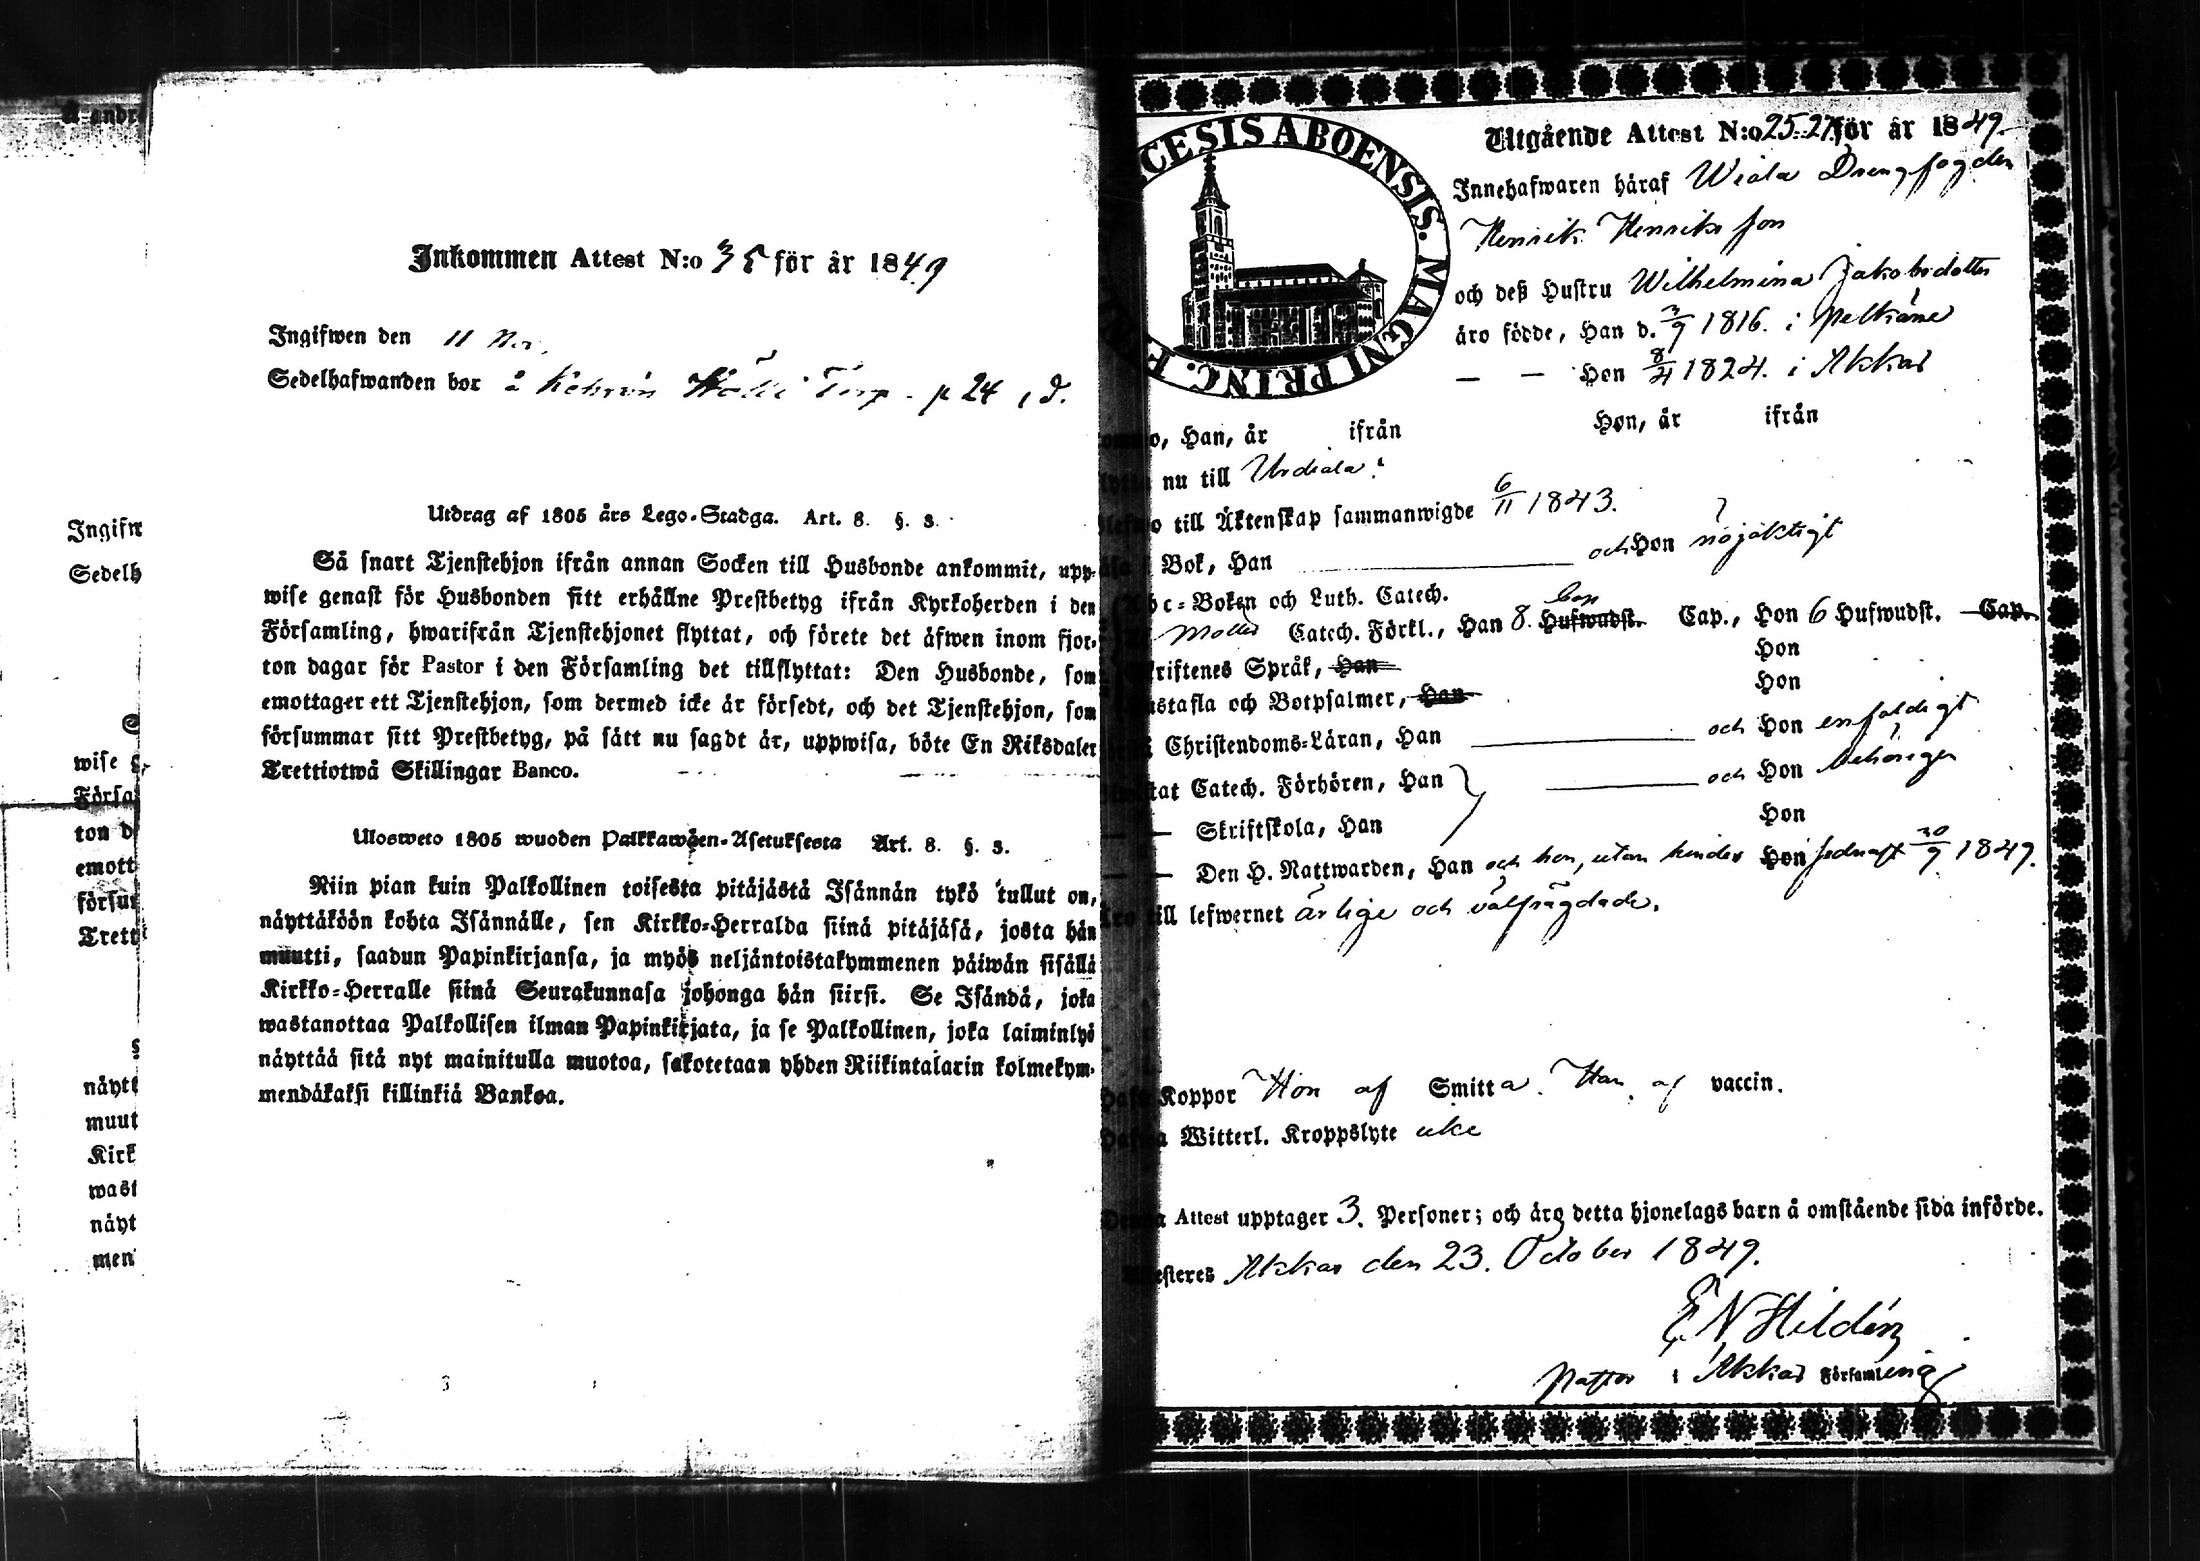 Å andr
Ingifw
Sedelh
wise
Försa
ton d
emott
försum
Trett
näytt
muut
Kirk
wast
näyt
men
Inkommen Attest N:o 35 för år 1849
Ingifwen den 11 Nov.
Sedelhafwanden bor å Torp. p 24, d.
Utdrag af 1805 års Lego-Stadga. Art. 8. §. 3.
Så snart Tjenstehjon ifrån annan Socken till Husbonde ankommit, upp-
wise genast för Husbonden sitt erhållne Prestbetyg ifrån Kyrkoherden i den
Församling, hwarifrån Tjenstehjonet flyttat, och förete det äfwen inom fjor-
ton dagar för Pastor i den Församling det tillflyttat: Den Husbonde, som
emottager ett Tjenstehjon, som dermed icke är försedt, och det Tjenstehjon, som
försummar sitt Prestbetyg, på sätt nu sagdt är, uppwisa, böte En Riksdaler
Trettiotwå Skillingar Banco.
Ulosweto 1805 wuoden Palkkawäen-Asetuksesta Art. 8. §. 3.
Niin pian kuin Palkollinen toisesta pitäjästä Isännän tykö tullut on,
näyttäköön kohta Isännälle, sen Kirkko-Herralda siinä pitäjäsä, josta hän
muutti, saadun Papinkirjansa, ja myös neljäntoistakymmenen päiwän sisällä
Kirkko-Herralle siinä Seurakunnasa johonga hän siirsi. Se Isändä, joka
wastanottaa Palkollisen ilman Papinkirjata, ja se Palkollinen, joka laiminlyö
näyttää sitä nyt mainitulla muotoa, sakotetaan yhden Riikintalarin kolmekym-
mendäkaksi killinkiä Bankoa.
CESIS ABOENSIS. MAGNI PRINC. F
Utgående Attest N:o 25-27 för år 1849.
Innehafwaren häraf Wiala Drengfogden
Henrik Henriksson
och deß Hustru Wilhelmina Jakobsdotter
äro födde, Han d. 3/9 1816. i Pelkäne
— — Hon 8/4 1824. i Akkas
o, Han, år ifrån Hon, år ifrån
nu till Urdiala.
till Äktenskap sammanwigde 6/11 1843.
Bok, Han och Hon nöjaktigt
Abc-Boken och Luth. Catech.
Möllers Catech. Förkl., Han 8. Hufwudst. Cap Cap., Hon 6 Hufwudst. Cap.
Skriftenes Språk, Han Hon
Hustafla och Botpsalmer, Han Hon
Christendoms-Läran, Han och Hon enfaldigt
tat Catech. Förhören, Han och Hon behörigen
— — Skriftskola, Han Hon
— — Den H. Nattwarden, Han och hon, utan hinder Hon sednast 30/9 1849.
Äro till lefwernet ärlige och välfrägdade.
Hafa Koppor Hon af Smitta. Han af vaccin.
Hafwa Witterl. Kroppslyte icke
Denna Attest upptager 3. Personer; och äro detta hjonelags barn å omstående sida införde.
Attesteres Akkas den 23. October 1849.
E N Hildén
Pastor i Akkas Församling